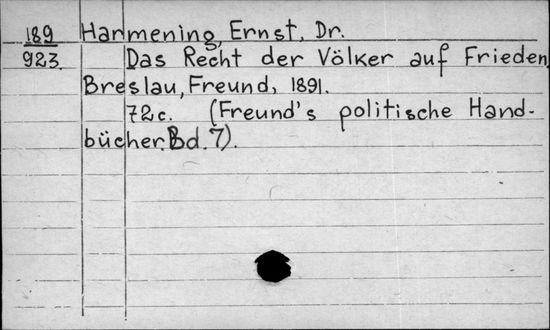 189 Harmening, Ernst, Dr.
923 Das Recht der Völker auf Frieden
Breslau, Freund, 1891.
72c. (Freund's politische Hand-
bücher. Bd. 7).